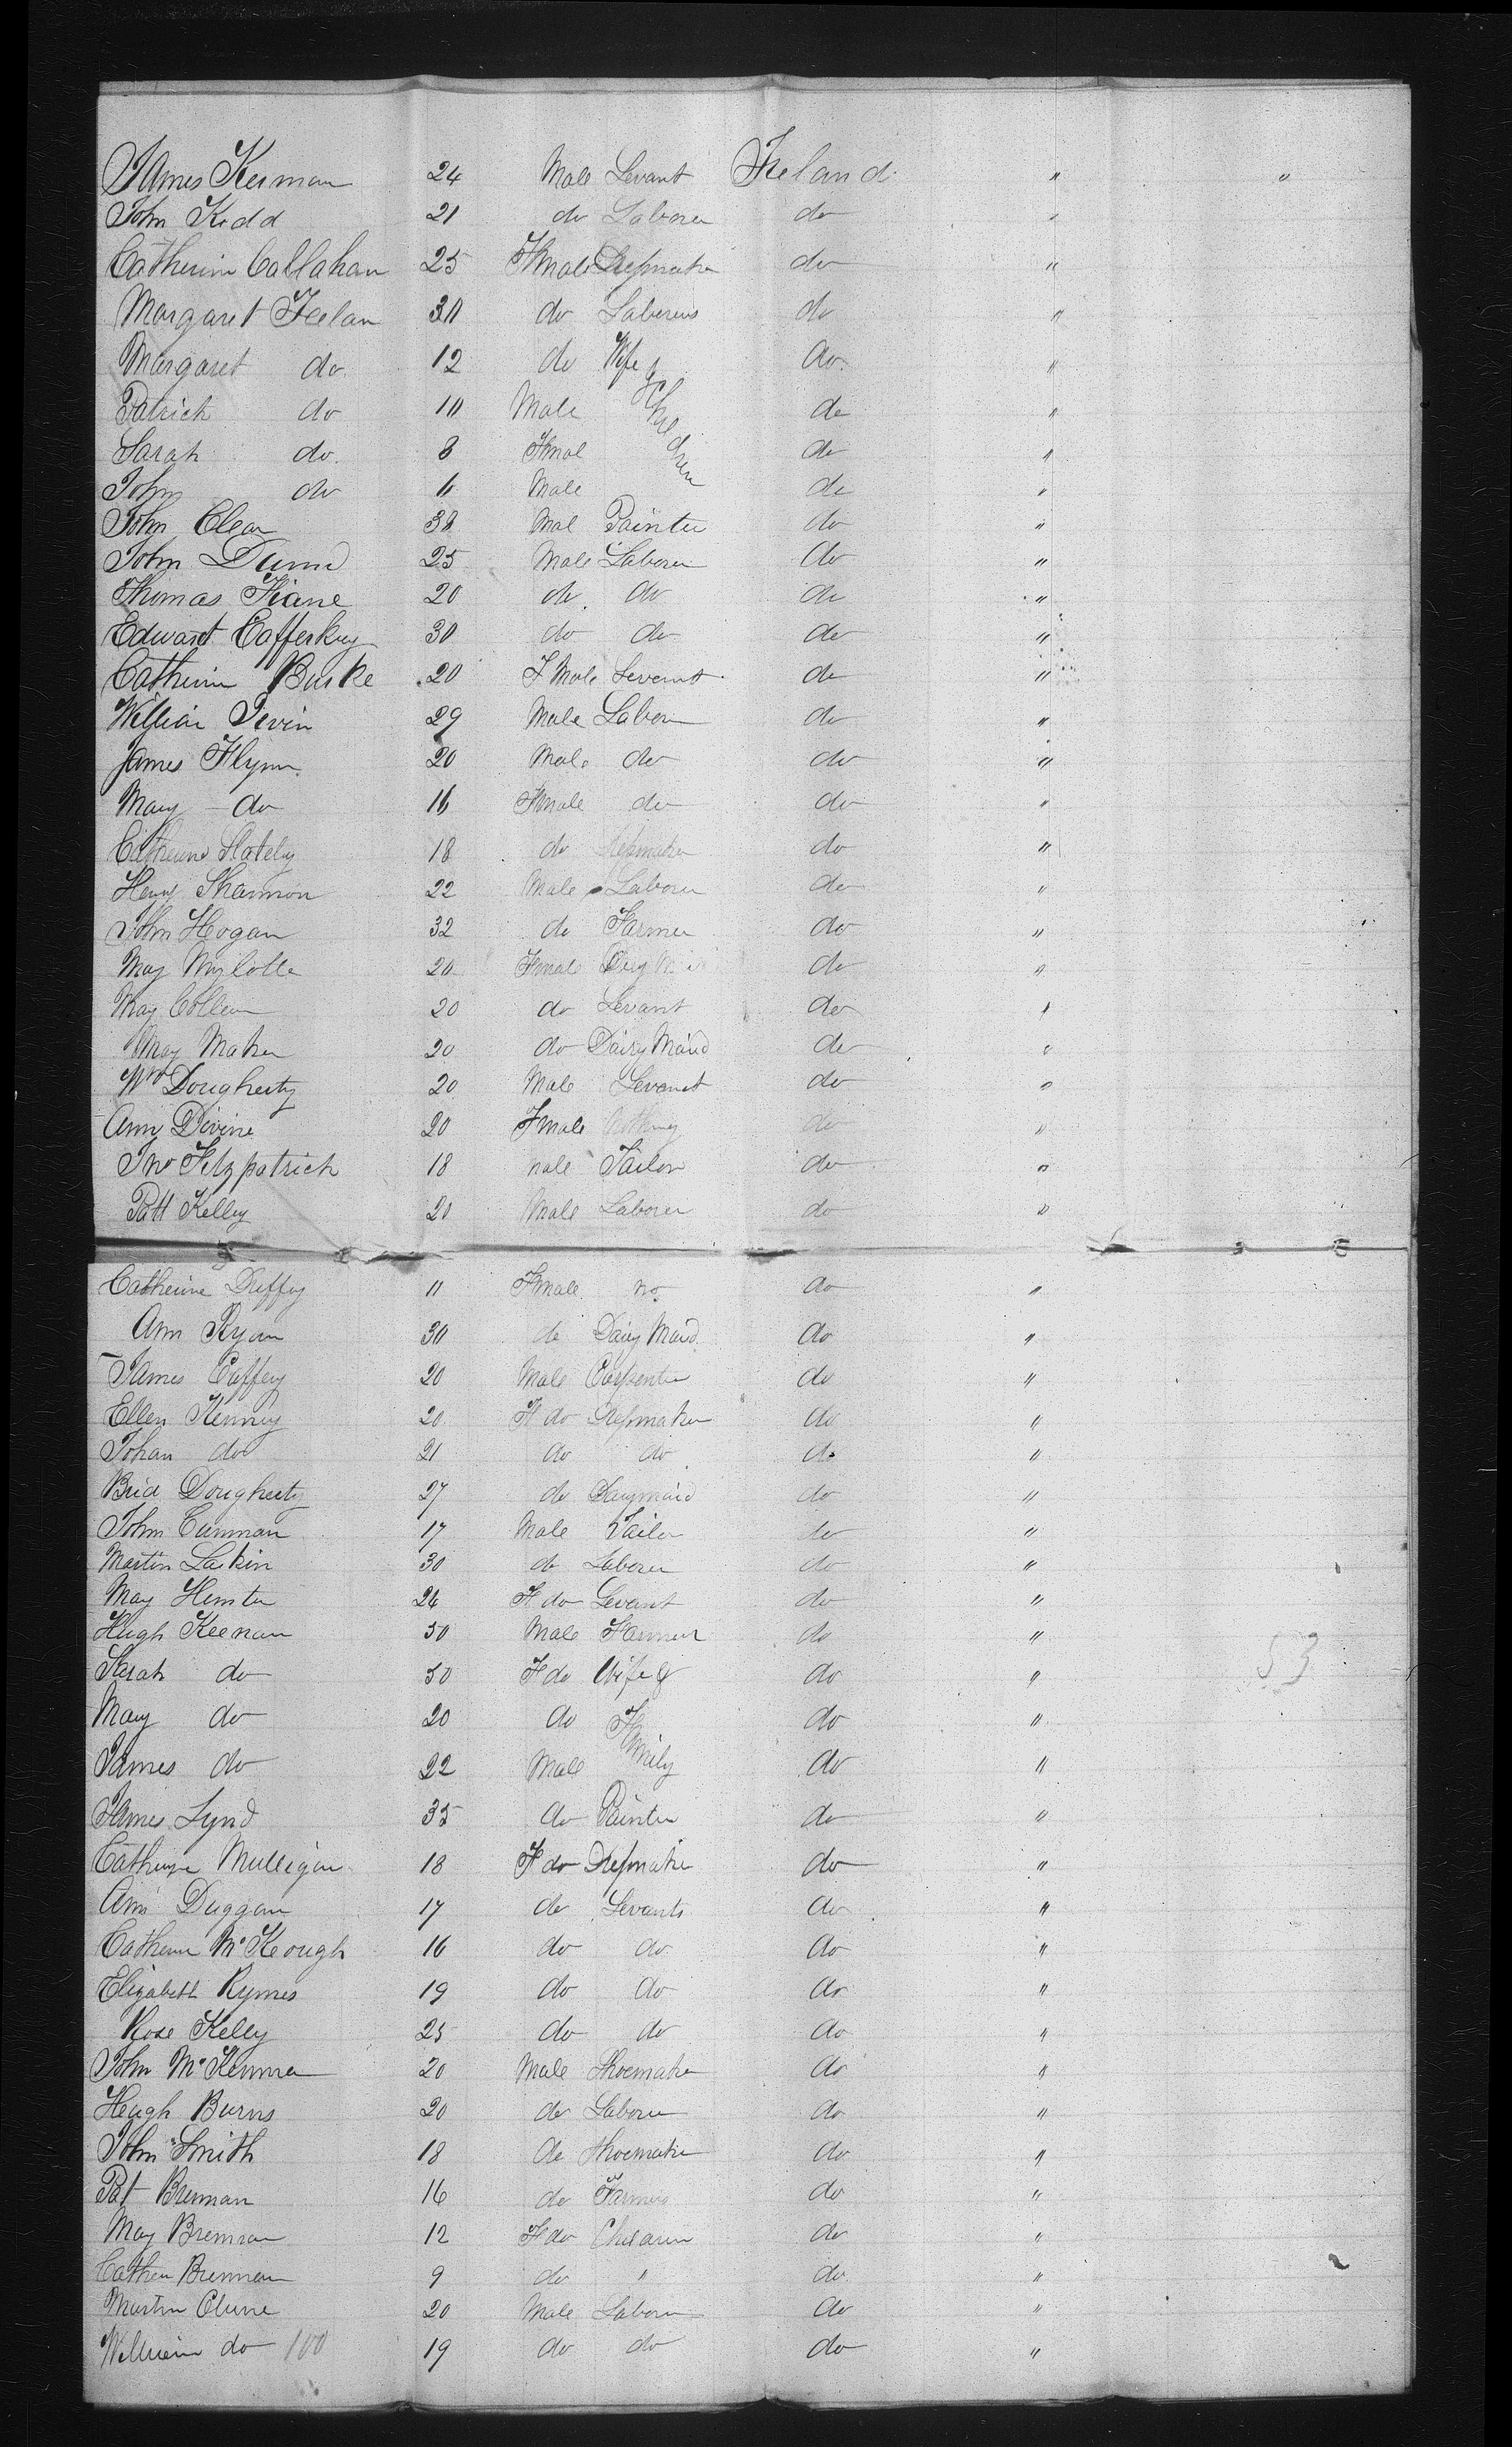 James Kerman 24 Male Servant Ireland " "
John Kidd 21 do Laborer do "
Catherine Callahan 25 Fmale Dressmaker do "
Margaret Feelan 30 do Laborers do "
Margaret do 12 do Wife & do "
Patrick do 10 Male Children do "
Sarah do 8 Fmal do "
John do 6 Male do "
John Clear 38 Mal Painter do "
John Dunn 25 Male Laborer do "
Thomas Kiane 20 do do do "
Edward Cafferkey 30 do do do "
Catherine Burke 20 F Male Servant do "
William Irvin 29 Male Labor do "
James Flynn 20 Male do do "
Mary do 16 Fmale do do "
Catherine 18 do Dressmaker do "
Henry Shannon 22 Male Laborer do "
John Hogan 32 do Farmer do "
May Mylotte 20 Fmale do "
May Collean 20 do Servant do "
May Maher 20 do Dairy Maid do "
Wm Dougherty 20 Male Servant do "
Ann Divine 20 Fmale Nothing do "
Jno Fitzpatrick 18 male Tailor do "
Patt Kelley 20 Male Laborer do "
Catherine Duffey 11 Fmale no do "
Ann Ryan 30 do Dairy Maid do "
James Caffery 20 Male Carpenter do "
Ellen Kenney 20 F do Dressmaker do "
Johan do 21 do do do "
Brid Dougherty 27 do Darymaid do "
John Cunnan 17 Male Tailor do "
Martin Larkin 30 do Laborer do "
May Hunter 24 F do Servant do "
Hugh Keenan 50 Male Farmer do "
53
Sarah do 50 F do Wife & do "
Mary do 20 do Fmily do "
James do 22 Male do "
James Lynd 35 do Painter do "
Catherine Mulligan 18 F do Dressmaker do "
Ann Duggan 17 do Servants do "
Catherine McKeough 16 do do do "
Elizabeth Rymes 19 do do do "
Rose Kelly 25 do do do "
John McKenna 20 Male Shoemaker do "
Heugh Burns 20 do Laborer do "
John Smith 18 do Shoemaker do "
Pat Brennan 16 do Farmers do "
May Brennan 12 F do Children do "
Cathern Brennan 9 do " do "
Martin Clune 20 Male Laborer do "
William do 100 19 do do do "